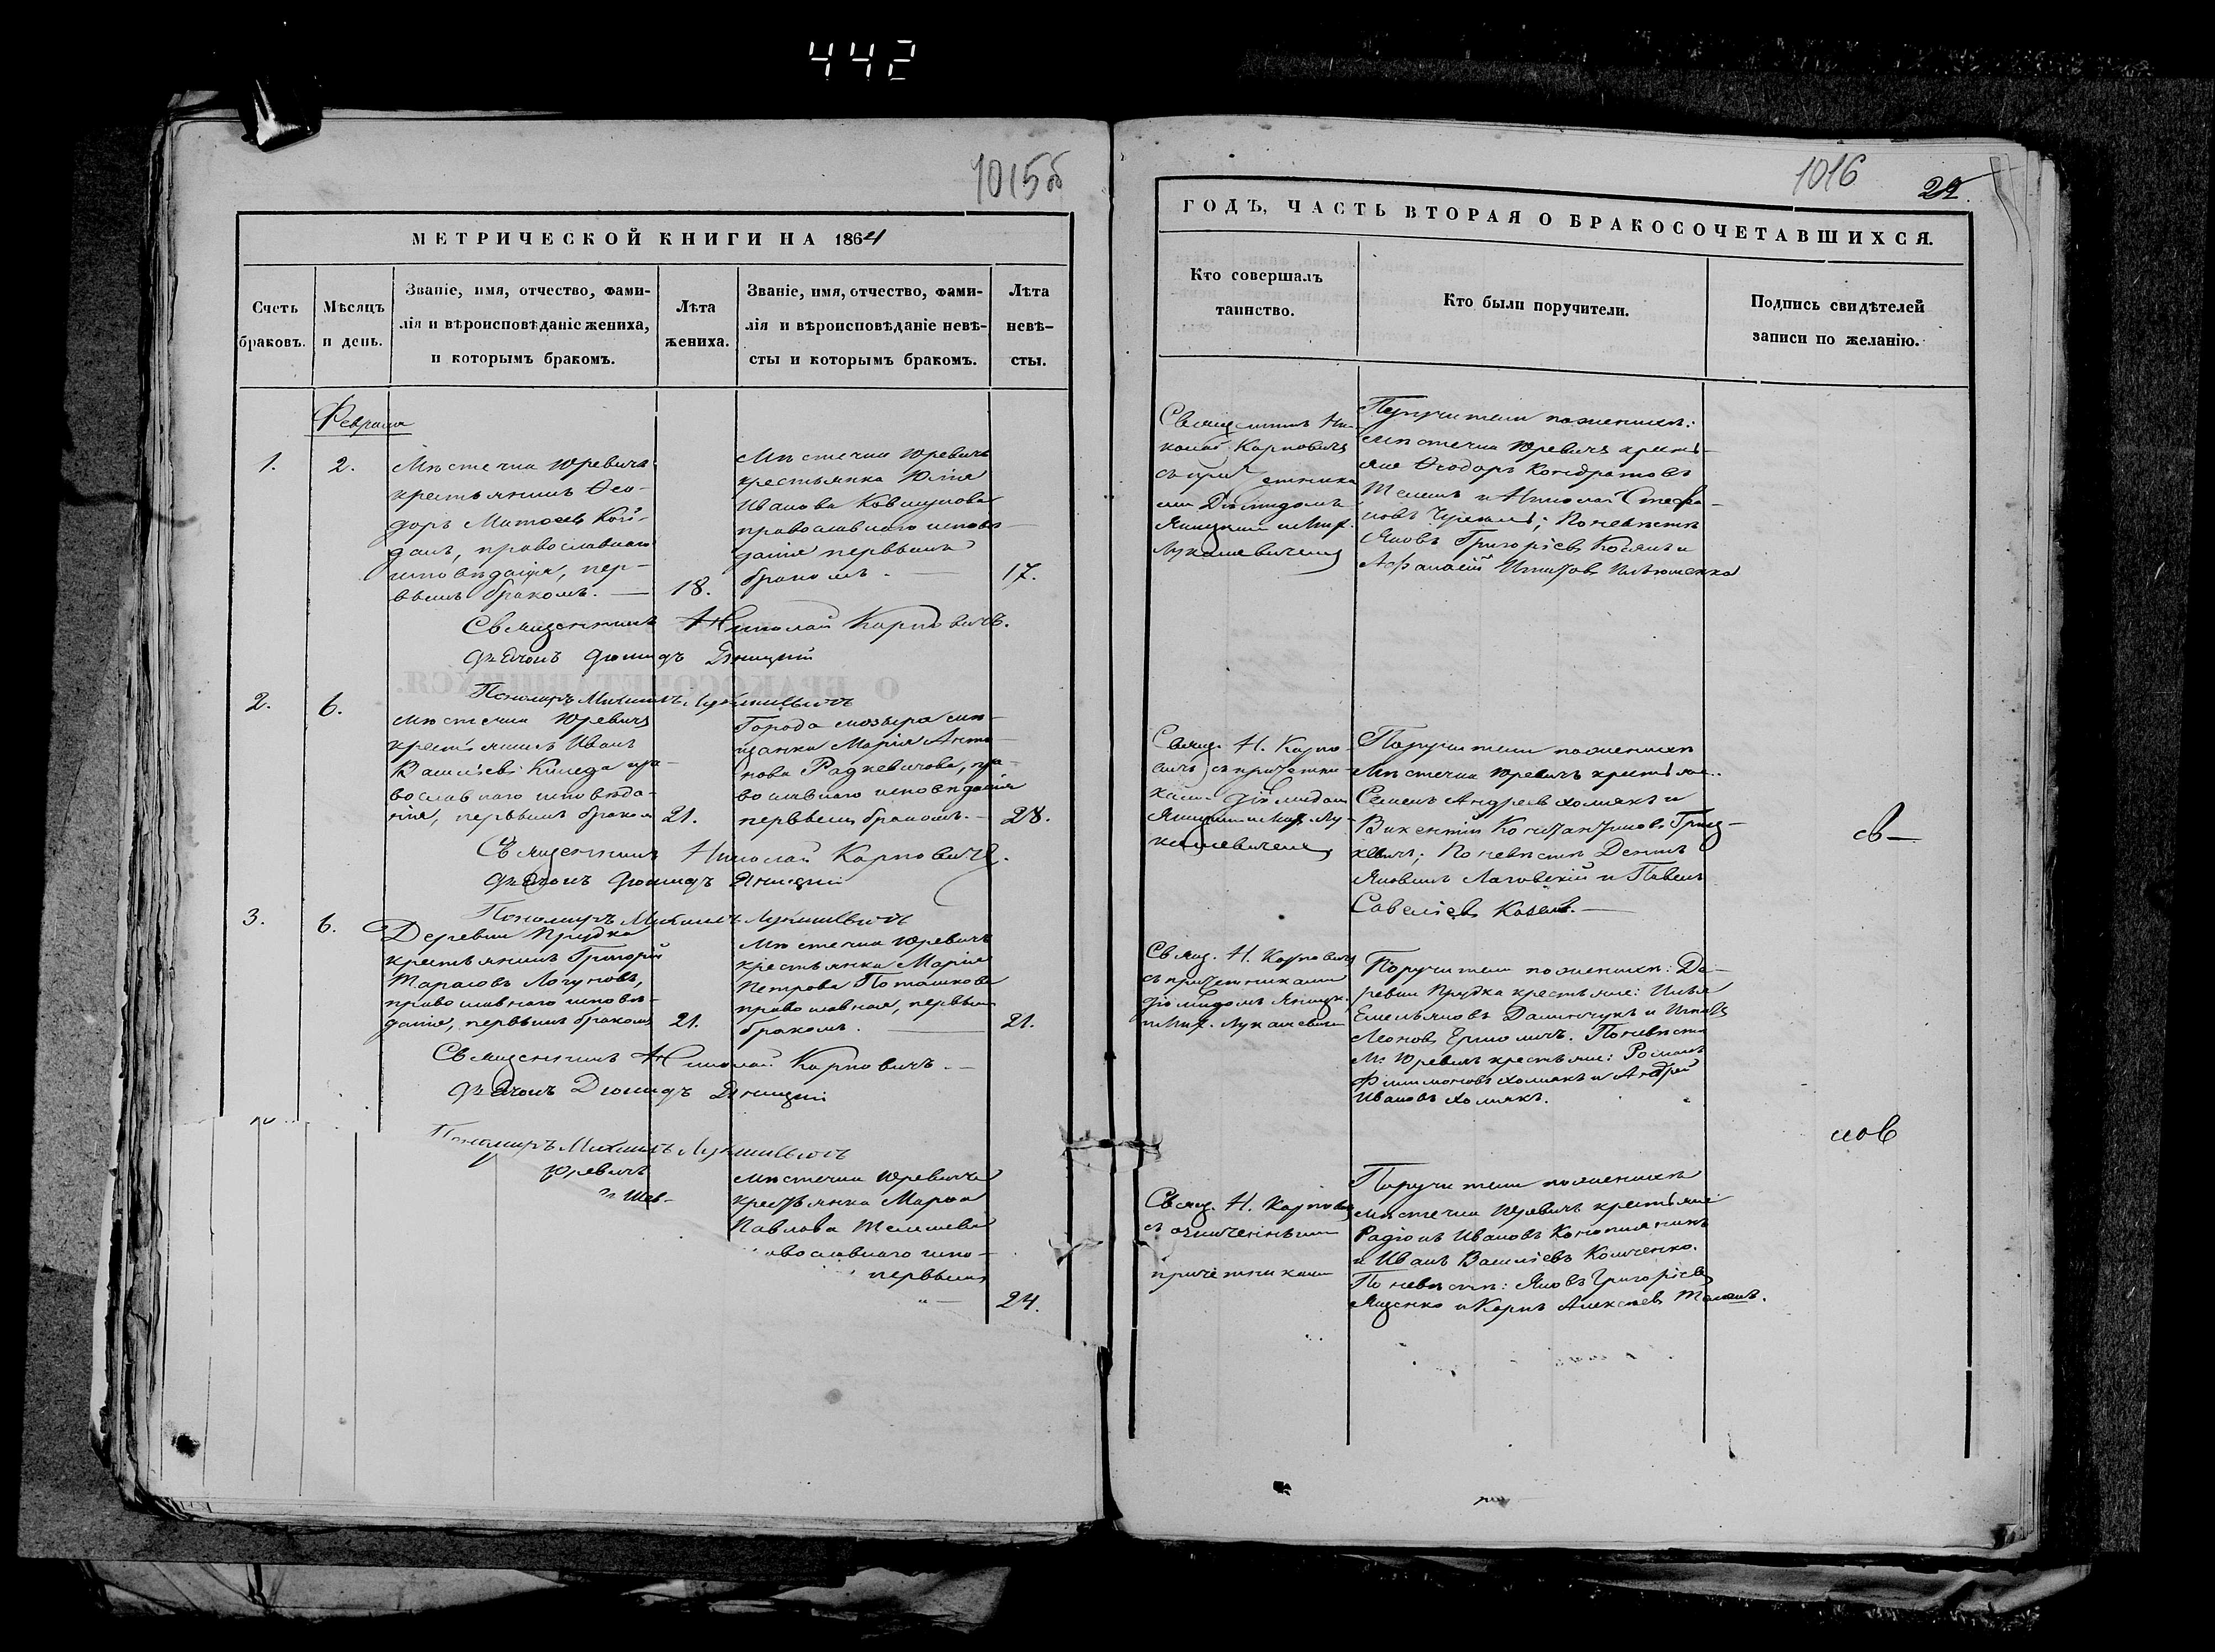 442
1015об
МЕТРИЧЕСКОЙ КНИГИ НА 1864
Счетъ браковъ.
Мѣсяцъ и день.
Званіе, имя, отчество, фами-
лія и вѣроисповѣданіе жениха,
и которымъ бракомъ.
Лѣта
жениха.
Званіе, имя, отчество, фами-
лія и вѣроисповѣданіе невѣ-
сты и которымъ бракомъ.
Лѣта
невѣ-
сты.
Февраля
1.
2.
Мѣстечка Юревичъ
крестьянинъ Ѳео-
доръ
православнаго
исповѣданія, пер-
вымъ бракомъ.
18.
Мѣстечка Юревичъ
крестьянка
Иванова
православнаго исповѣ-
данія первымъ
бракомъ.
17.
Священникъ Николай Карповичъ.
Дьячокъ Діомидъ Яницкій
Пономарь Михаилъ Лукашевичъ
2.
6.
Мѣстечка Юревичъ
крестьянинъ Иванъ
Василіевъ пра-
вославнаго исповѣда-
нія, первымъ бракомъ
21.
Города Мозыра мѣ-
щанка Марія Анто-
нова Радкевичова, пра-
вославнаго исповѣданія
первымъ бракомъ.
28.
Священникъ Николай Карповичъ.
Дьячокъ Діомидъ Яницкій
Пономарь Михаилъ Лукашевичъ
3.
6.
Деревни Прудка
крестьянинъ Григорій
Тарасовъ Логуновъ,
православнаго исповѣ-
данія, первымъ бракомъ
21.
Мѣстечка Юревичъ
крестьянка Марія
Петрова Поташкова
православная, первымъ
бракомъ.
21.
Священникъ Николай Карповичъ.
Дьячокъ Діомидъ Яницкій
Пономарь Михаилъ Лукашевичъ
Юревичъ
Шев-
Мѣстечка Юревичъ
крестьянка Марѳа
Павлова Телешева
авославнаго испо-
первымъ
24.
1016
22.
ГОДЪ, ЧАСТЬ ВТОРАЯ О БРАКОСОЧЕТАВШИХСЯ.
Кто совершалъ
таинство.
Кто были поручители.
Подпись свидѣтелей
записи по желанію.
Священникъ Ни-
колай Карповичъ
съ причетника-
ми Діомидомъ
Яницкимъ и Мих.
Лукашевичемъ
Поручители по женихѣ:
Мѣстечка Юревичъ крестья-
яне Ѳеодоръ Кондратовъ
Телешъ и Николай Стефа-
новъ По невѣстѣ
Яковъ Григорієвъ и
Афанасій
Свящ. Н. Карпо-
вичъ съ причетни-
ками Діомидомъ
Яницкимъ и Мих. Лу-
кашевичемъ
Поручители по женихѣ
Мѣстечка Юревичъ крестьяне
Семенъ Андреевъ Хомякъ и
Викентій Константиновъ
По невѣстѣ
и Павелъ
Савеліевъ
св—
Свящ. Н. Карповичъ
съ причетниками
Діомидомъ Яницк.
и Мих. Лукашевичемъ
Поручители по женихѣ: Де-
ревни Прудка крестьяне: Илья
Емельяновъ и
Леоновъ По невѣстѣ
М. Юревичъ крестьяне: Романъ
Филимоновъ Хомякъ и Андрей
Ивановъ Хомякъ.
нов
Свящ. Н. Карповичъ
съ означенными
причетниками
Поручители по женихѣ
мѣстечка Юревичъ крестьяне
Радіонъ Ивановъ
и Иванъ Василіевъ
По невѣстѣ: Яковъ Григорієвъ
Яценко и Карпъ Алексѣевъ